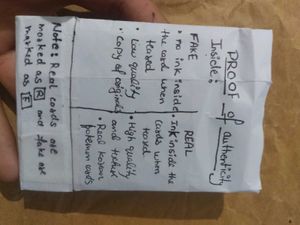 PROOF of authenticity
Inside:
FAKE
• no ink inside
the card when
teared
• Low quality
• Copy of originals
REAL
• Ink inside the
cards when
teared
• High quality
and texture
• Real known
pokemon cards
Note: Real cards are
marked as R and fake are
marked as F